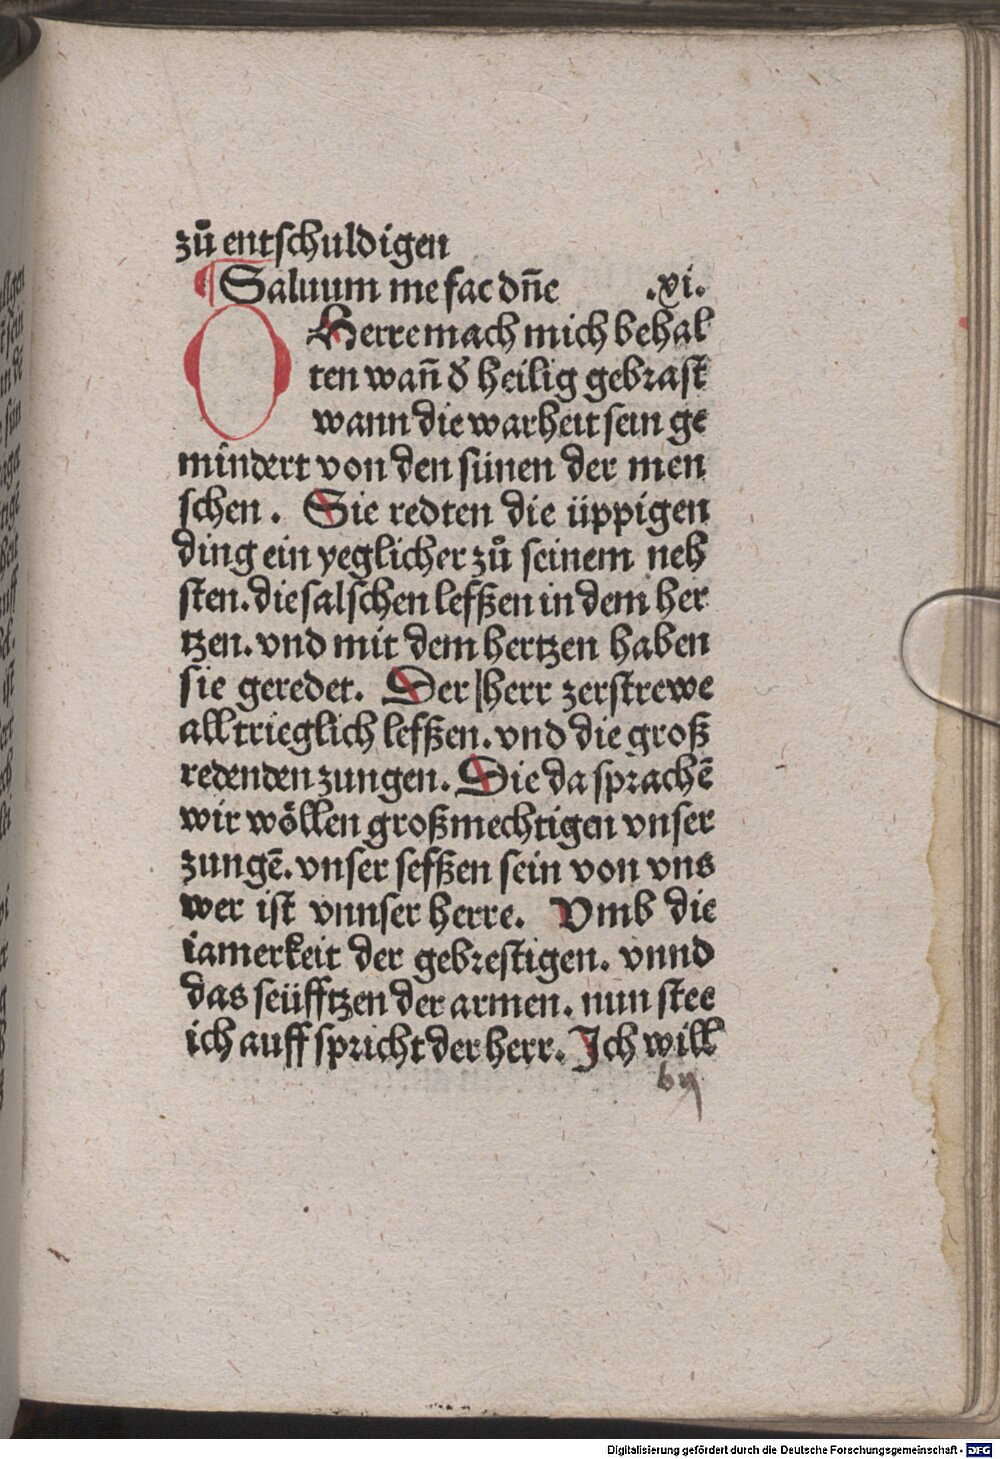 zů entschuldigen
¶ Saluum me fac dn̄e .xi.
O Herre mach mich behal
ten wañ d̓ heilig gebrast
wann die warheit sein ge
mindert von den sünen der men
schen. Sie redten die üppigen
ding ein yeglicher zů seinem neh
sten. die falschen lefßen in dem her
tzen. vnd mit dem hertzen haben
sie geredet. Der herr zerstrewe
all trieglich lefßen. vnd die groß
redenden zungen. Die da sprachē
wir wöllen großmechtigen vnser
zungē. vnser lefßen sein von vns
wer ist vnnser herre. Vmb die
iamerkeit der gebrestigen. vnnd
das seüfftzen der armen. nun stee
ich auff spricht der herr. Ich will
b ij
Digitalisierung gefördert durch die Deutsche Forschungsgemeinschaft - DFG